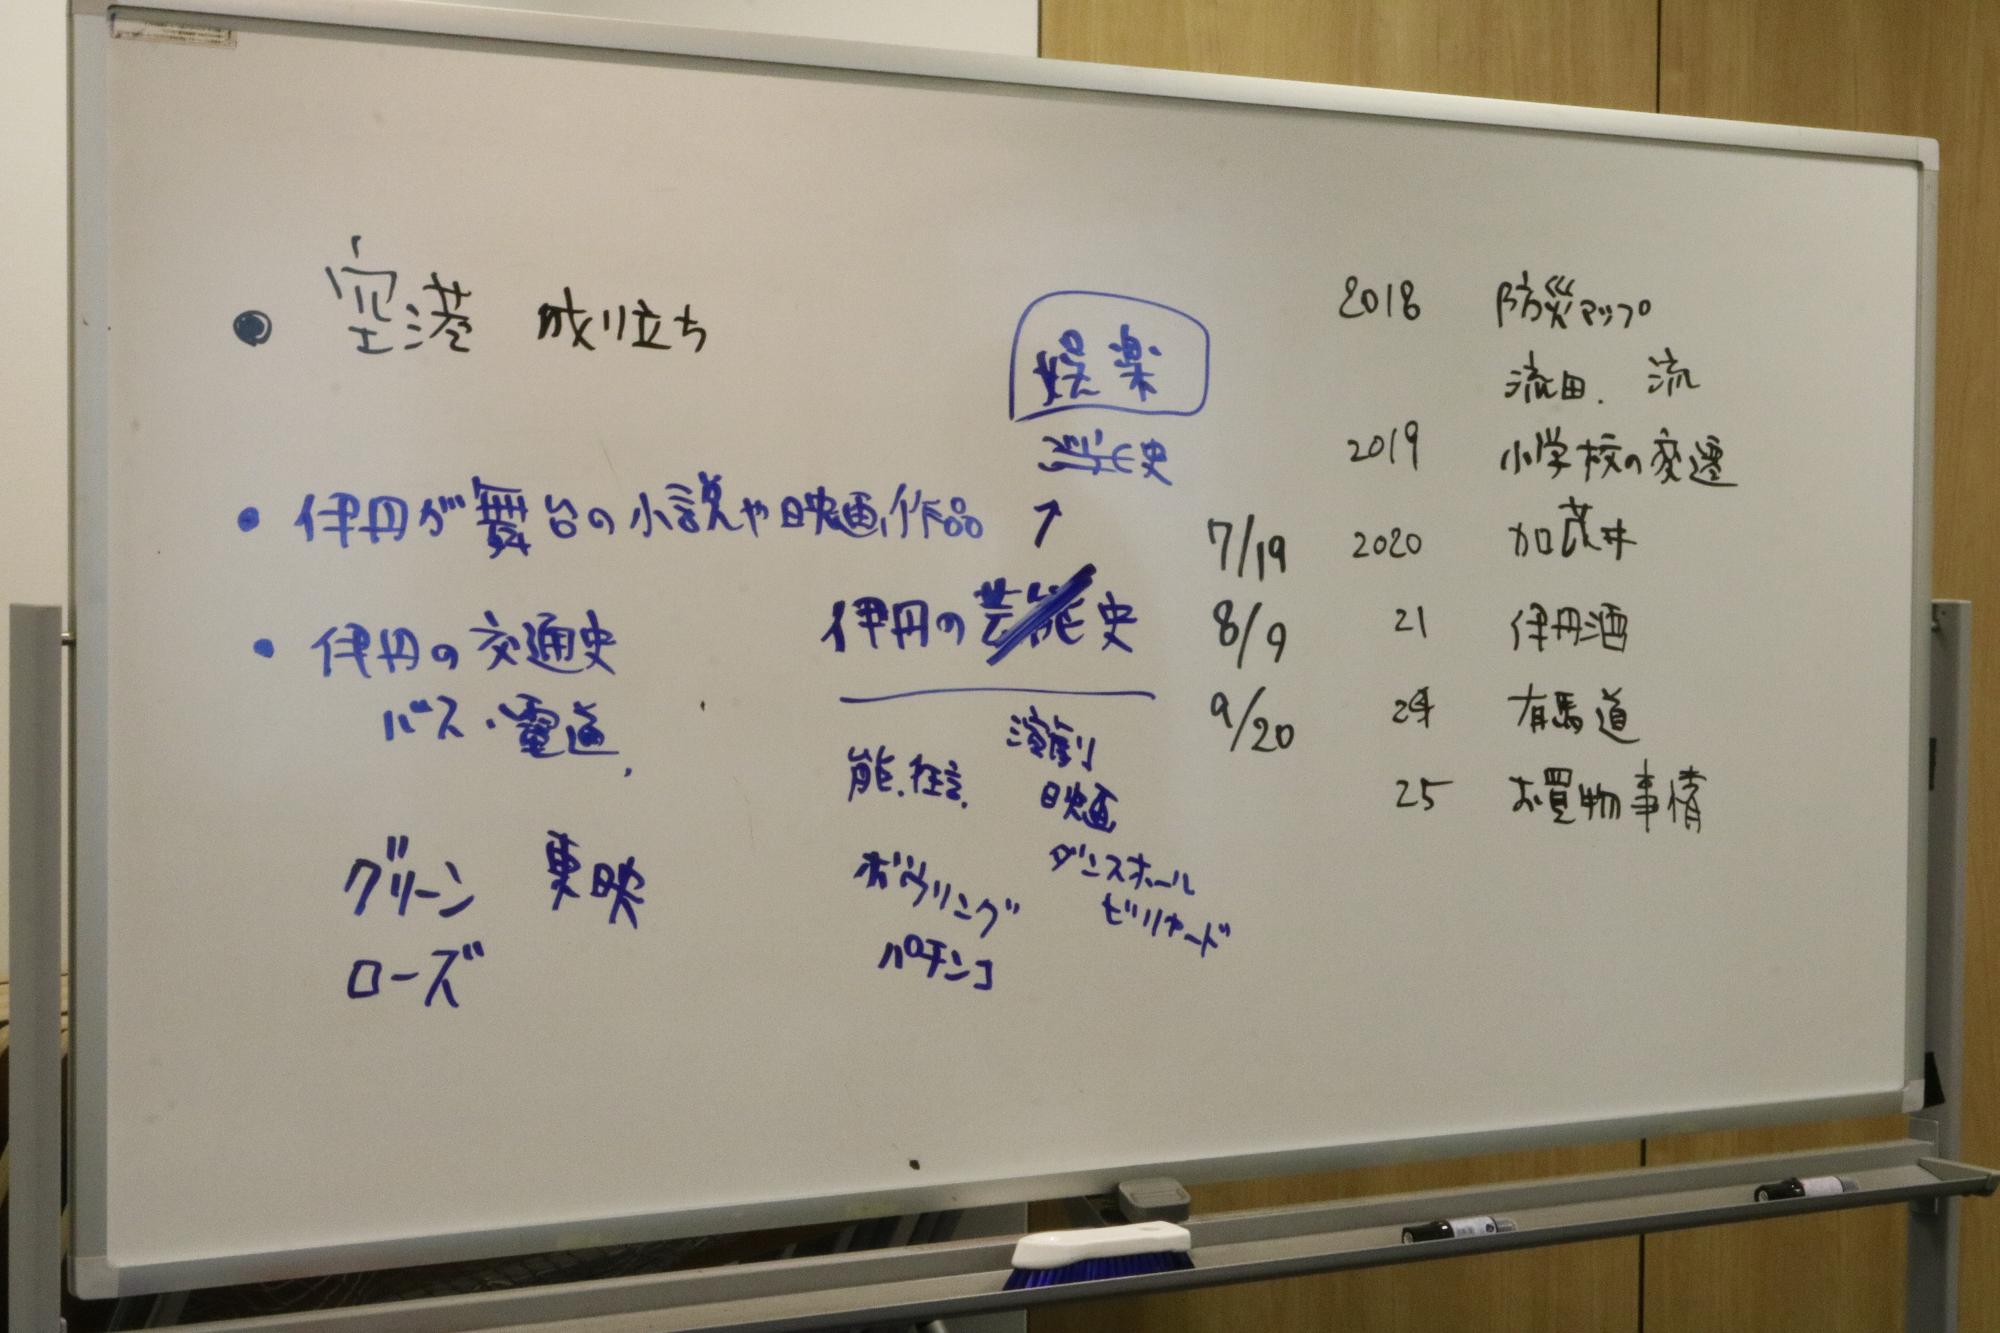 ● 空港 成り立ち
・伊丹が舞台の小説や映画、作品
・伊丹の交通史
バス・電道
グリーン 東映
ローズ
娯楽
史
↑
伊丹の芸能史
能.狂言.
演劇
映画
ボウリング
ダンスホール
ビリヤード
パチンコ
2018 防災マップ
流田. 流
2019 小学校の変遷
7/19 2020 加茂井
8/9 21 伊丹酒
9/20 24 有馬道
25 お買物事情